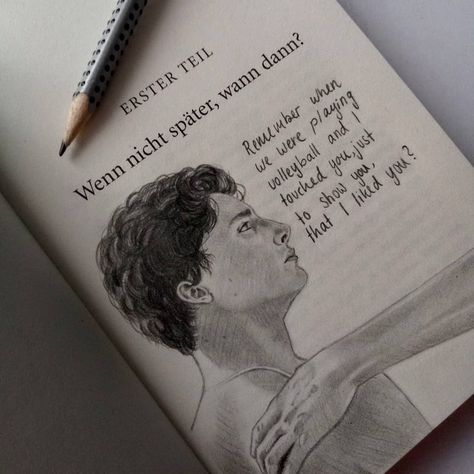 ERSTER TEIL
Wenn nicht später, wann dann?
Remember when
we were playing
volleyball and I
touched you, just
to show you,
that I liked you?